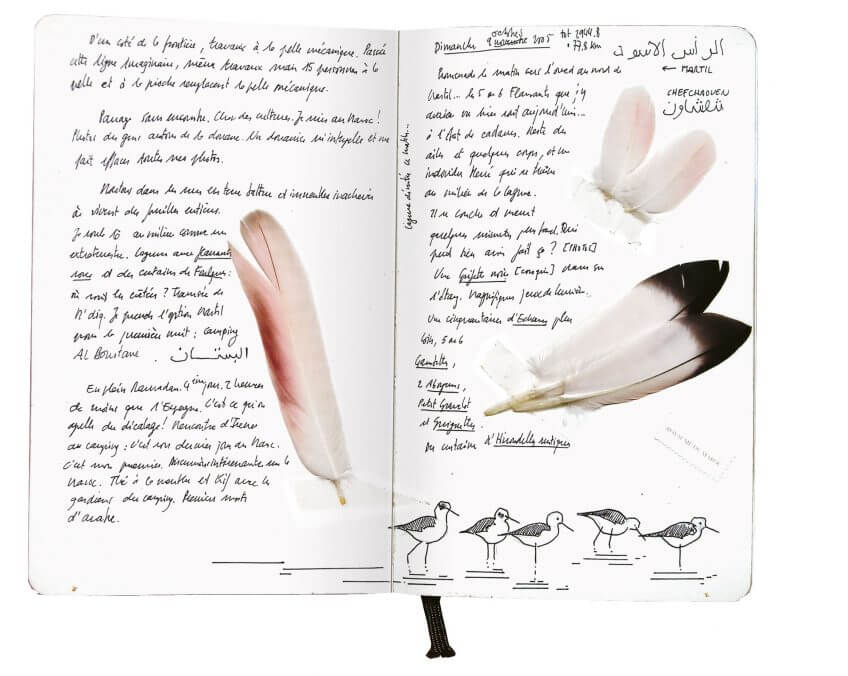 D'un coté de la frontière, travaux à la pelle mécanique. Passée
cette ligne imaginaire, même travaux mais 15 personnes à la
pelle et à la pioche remplacent la pelle mécanique.
Passage sans encontre. Choc des cultures. Je suis au Maroc !
Photos des gens autour de la douane. Un douanier m'interpelle et me
fait effacer toutes mes photos.
dans les rues en terre battue et immeubles
où vivent des familles entières.
Je roule au milieu comme un
extraterrestre. Lagune avec flamants
roses et des centaines de Foulques :
où sont les côtes ? Traversée de
M'diq. Je prends l'option Martil
pour la première nuit : camping
AL Boustane. البستان
En plein Ramadan. 4ème jour. 2 heures
de moins que l'Espagne. C'est ce qu'on
appelle du décalage ! Rencontre d'Irene
au camping : c'est son dernier jour au Maroc.
C'est mon premier. Discussion intéressante sur le
Maroc. Thé à la menthe et kif avec le
gardien du camping. Premiers mots
d'arabe.
Dimanche 9 octobre 2005 tot 2944.8
+ 77,8 km
الرأس الاسود
← MARTIL
CHEFCHAOUEN
شفشاون
Promenade le matin vers l'oued au nord de
Martil... les 5 ou 6 Flamants que j'y
avais vu hier soir aujourd'hui...
à l'état de cadavres. Reste des
ailes et quelques corps, et un
individu blessé qui se traîne
au milieu de la lagune.
Il se couche et meurt
quelques minutes plus tard. Qui
peut bien avoir fait ça ? [PHOTO]
Une Guifette noire [croquis] dans
l'étang. Magnifiques jeux de lumière.
Une cinquantaine d'Echasses plus
loin, 5 ou 6
Gambettes,
2 Aboyeurs,
Petit Gravelot
et Guignettes.
Une centaine d'Hirondelles rustiques
Lagune désertée ce matin...
ROYAUME DU MAROC